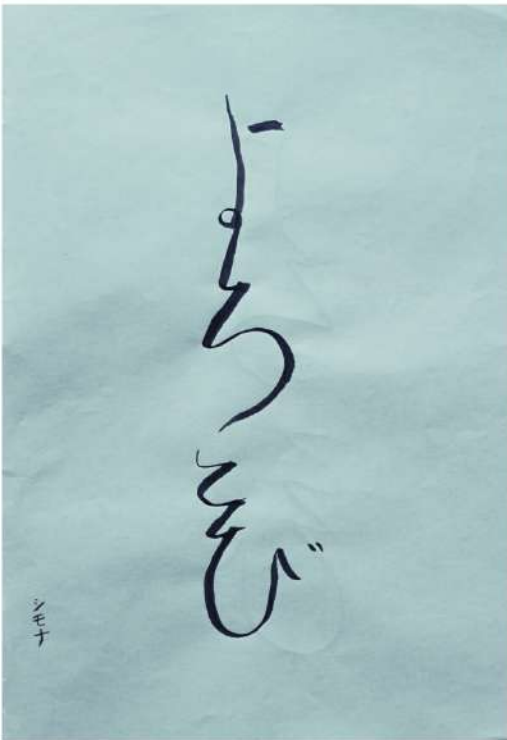 よろこび
シモナ